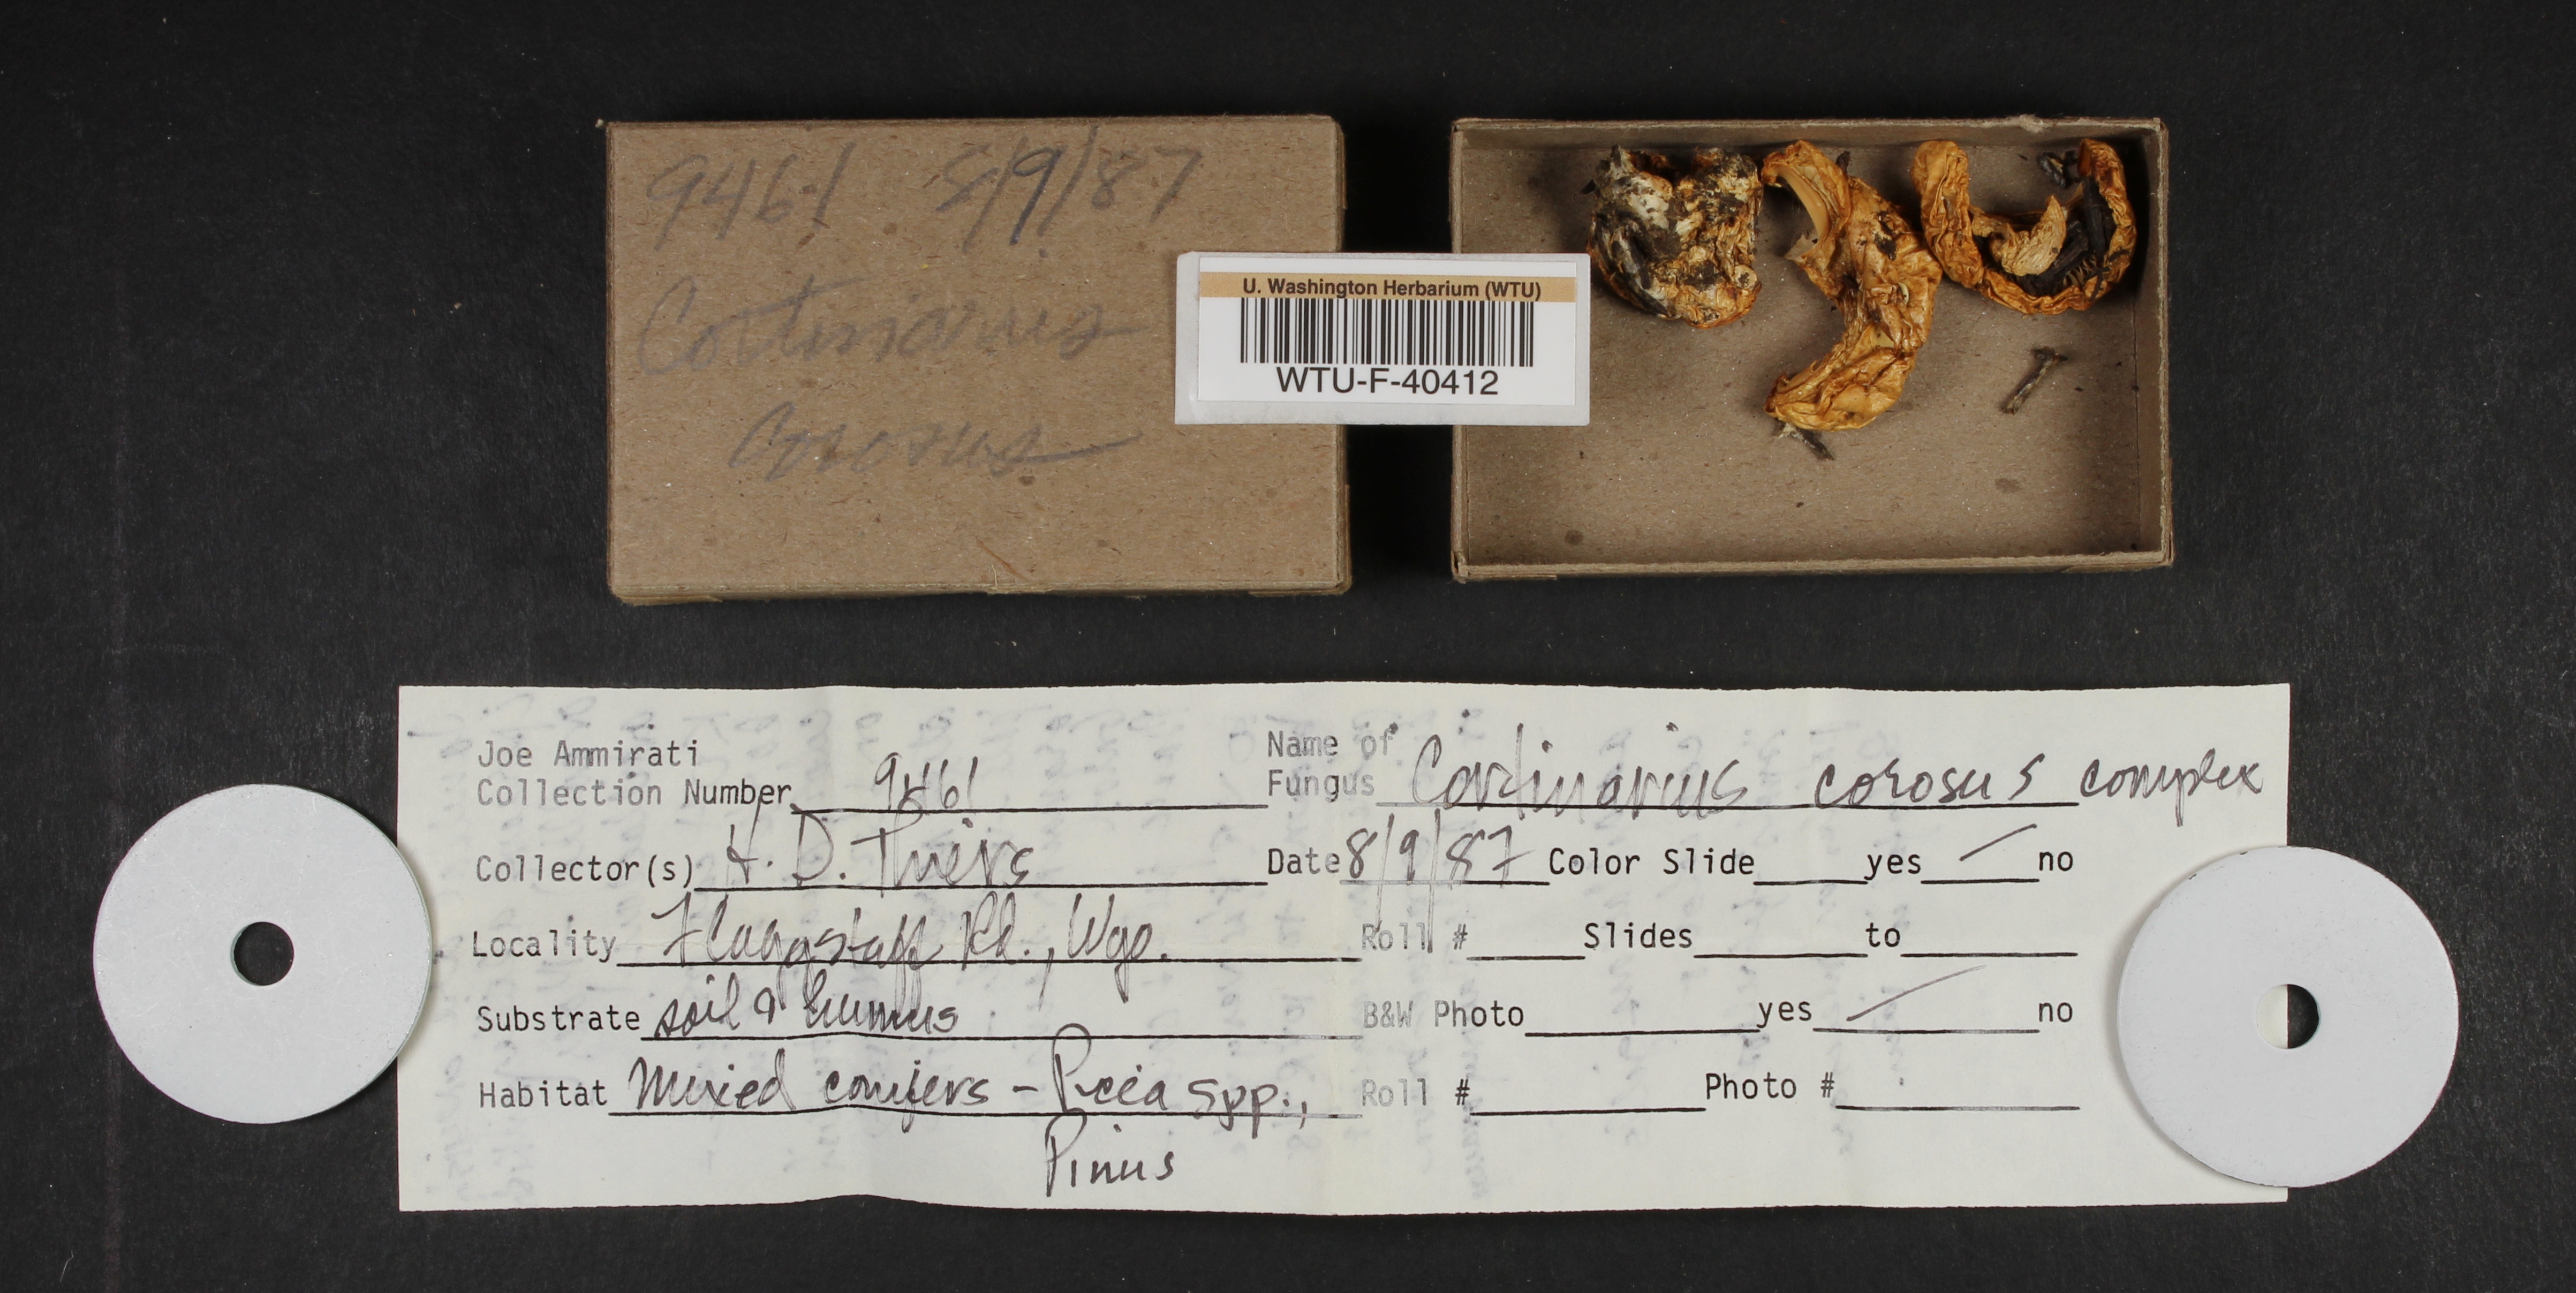 9461 8/9/87
Cortinarius
corosus
U. Washington Herbarium (WTU)
WTU-F-40412
Joe Ammirati
Collection Number 9461
Name of
Fungus Cortinarius corosus complex
Collector(s) H. D. Thiers
Date 8/9/87 Color Slide yes no
Locality Flaggstaff Rd., Wyo.
Roll # Slides to
Substrate soil & humus
B&W Photo yes no
Habitat Mixed conifers - Picea spp.,
Roll # Photo #
Pinus